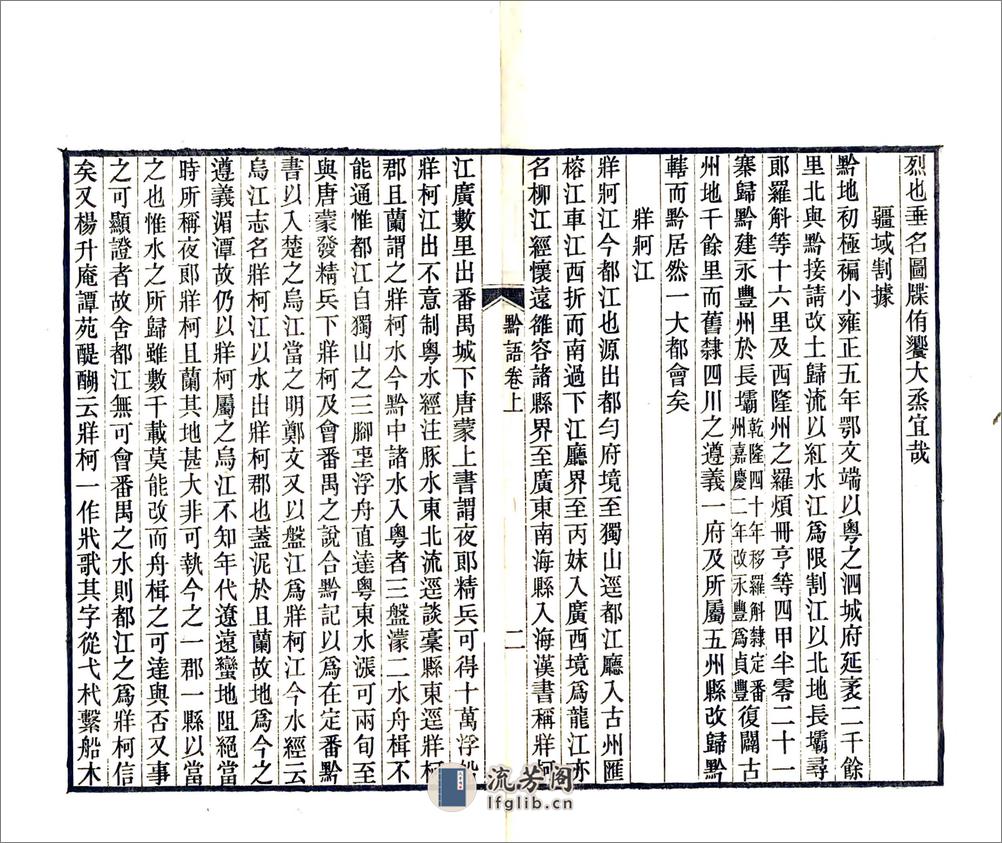 烈也垂名圖牒侑饗大烝宜哉
疆域割據
黔地初極褊小雍正五年鄂文端以粵之泗城府延袤二千餘
里北與黔接請改土歸流以紅水江爲限割江以北地長壩尋
郞羅斛等十六里及西隆州之羅煩冊亨等四甲半零二十一
寨歸黔建永豐州於長壩乾隆四十年移羅斛隸定番州嘉慶二年改永豐爲貞豐復闢古
州地千餘里而舊隸四川之遵義一府及所屬五州縣改歸黔
轄而黔居然一大都會矣
牂牁江
牂牁江今都江也源出都勻府境至獨山逕都江廳入古州匯
榕江車江西折而南過下江廳界至丙妹入廣西境爲龍江亦
名柳江經懷遠雒容諸縣界至廣東南海縣入海漢書稱牂柯
黔語卷上
二
江廣數里出番禺城下唐蒙上書謂夜郞精兵可得十萬浮船
牂柯江出不意制粵水經注豚水東北流逕談稾縣東逕牂柯
郡且蘭謂之牂柯水今黔中諸水入粵者三盤濛二水舟楫不
能通惟都江自獨山之三腳坉浮舟直達粵東水漲可兩旬至
與唐蒙發精兵下牂柯及會番禺之說合黔記以爲在定番黔
書以入楚之烏江當之明鄭文又以盤江爲牂柯江今水經云
烏江志名牂柯江以水出牂柯郡也蓋泥於且蘭故地爲今之
遵義湄潭故仍以牂柯屬之烏江不知年代遼遠蠻地阻絕當
時所稱夜郞牂柯且蘭其地甚大非可執今之一郡一縣以當
之也惟水之所歸雖數千載莫能改而舟楫之可達與否又事
之可顯證者故舍都江無可會番禺之水則都江之爲牂柯信
矣又楊升庵譚苑醍醐云牂柯一作戕歌其字從弋杙繫船木
流芳阁
lfglib.cn